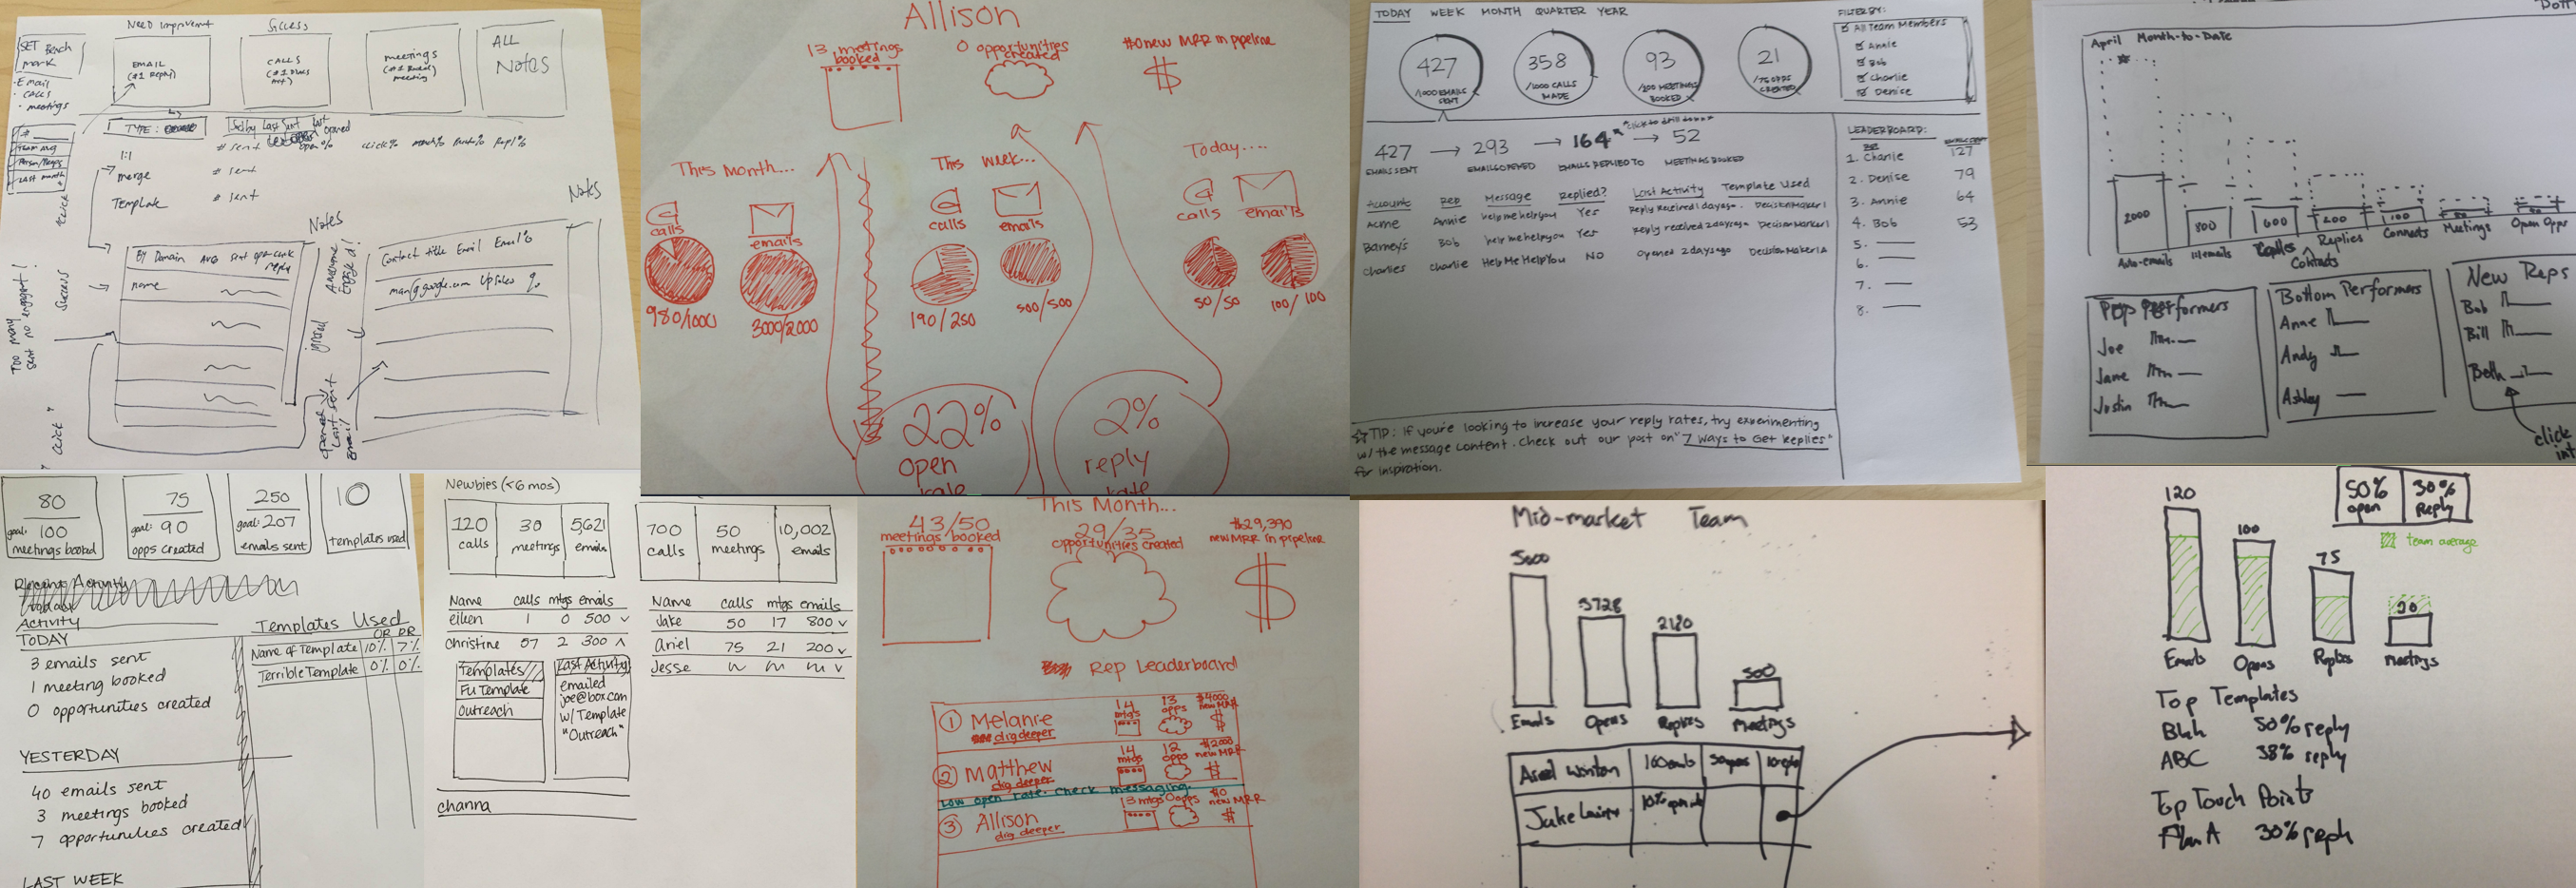 Need Improvement
Success
SET Bench
mark
EMAIL
(#1 Reply)
CALLS
meetings
meeting
ALL
Notes
- Email
- CALLS
- meetings
Team avg
Last month
TYPE:
Sort by Last Sent
# sent
open %
click %
Repl %
1:1
merge
# sent
Template
# sent
click
Notes
Notes
By Domain Avg sent open click
reply
name
Contact title Email Email %
%
Success
Too many
sent no engagement!
opened
Last sent
email
"click"
Allison
13 meetings
booked
0 opportunities
created
$0 new MRR in pipeline
$
This Month...
This week...
Today....
calls
emails
calls
emails
calls
emails
980/1000
3000/2000
190/250
500/500
50/50
100/100
22%
open
rate
2%
reply
rate
TODAY WEEK MONTH QUARTER YEAR
427
/1000 EMAILS
SENT
358
/1000 CALLS
MADE
93
/200 MEETINGS
BOOKED
21
/75 OPPS
CREATED
FILTER BY:
All Team Members
Annie
Bob
Charlie
Denise
"click to drill down"
427 → 293 → 164 → 52
EMAILS SENT EMAILS OPENED EMAILS REPLIED TO MEETINGS BOOKED
Account Rep Message Replied? Last Activity Template Used
Acme Annie help me help you Yes Reply received 1 day ago. DecisionMaker1
Barneys Bob help me help you Yes Reply received 2 days ago DecisionMaker1
Charlies Charlie Help Me Help You NO Opened 2 days ago DecisionMaker1A
LEADERBOARD:
EMAILS SENT
1. Charlie 127
2. Denise 79
3. Annie 64
4. Bob 53
5.
6.
7.
8.
TIP: If you're looking to increase your reply rates, try experimenting
w/ the message content. Check out our post on "7 Ways to Get Replies"
for inspiration.
April Month-to-Date
2000
800
600
200
100
Auto-emails
1:1 emails
Calls
Contacts
Replies
Connects
Meetings
Open Opps
Top Performers
Joe
Jane
Justin
Bottom Performers
Anne
Andy
Ashley
New Reps
Bob
Bill
Beth
click
int
80
goal: 100
meetings booked
75
goal: 90
opps created
250
goal: 207
emails sent
10
templates used
Activity
TODAY
3 emails sent
1 meeting booked
0 opportunities created
YESTERDAY
40 emails sent
3 meetings booked
7 opportunities created
LAST WEEK
Templates Used
OR RR
Name of Template 10% 7%
Terrible Template 0% 0%
Newbies (<6 mos)
120
calls
30
meetings
5,621
emails
700
calls
50
meetings
10,002
emails
Name calls mtgs emails
eileen 1 0 500
christine 57 2 300
Templates
FU Template
Outreach
Last Activity
emailed
joe@box.com
w/ Template
"Outreach"
channa
Name calls mtgs emails
Jake 50 17 800
ariel 75 21 200
Jesse
This Month...
43/50
meetings booked
29/35
opportunities created
$29,390
new MRR in pipeline
$
Rep Leaderboard
1 Melanie
dig deeper
14
mtgs
13
opps
$4000
new MRR
$
2 Matthew
dig deeper
14
mtgs
12
opps
$2000
new MRR
$
Low open rate. Check messaging.
3 Allison
dig deeper
13 mtgs
0 opps
$0
new MRR
$
Mid-market Team
5000
3728
2180
500
Emails
Opens
Replies
Meetings
120
100
75
20
Emails
Opens
Replies
Meetings
50%
open
30%
Reply
team average
Top Templates
Blah 50% reply
ABC 38% reply
Top Touch Points
Plan A 30% reply